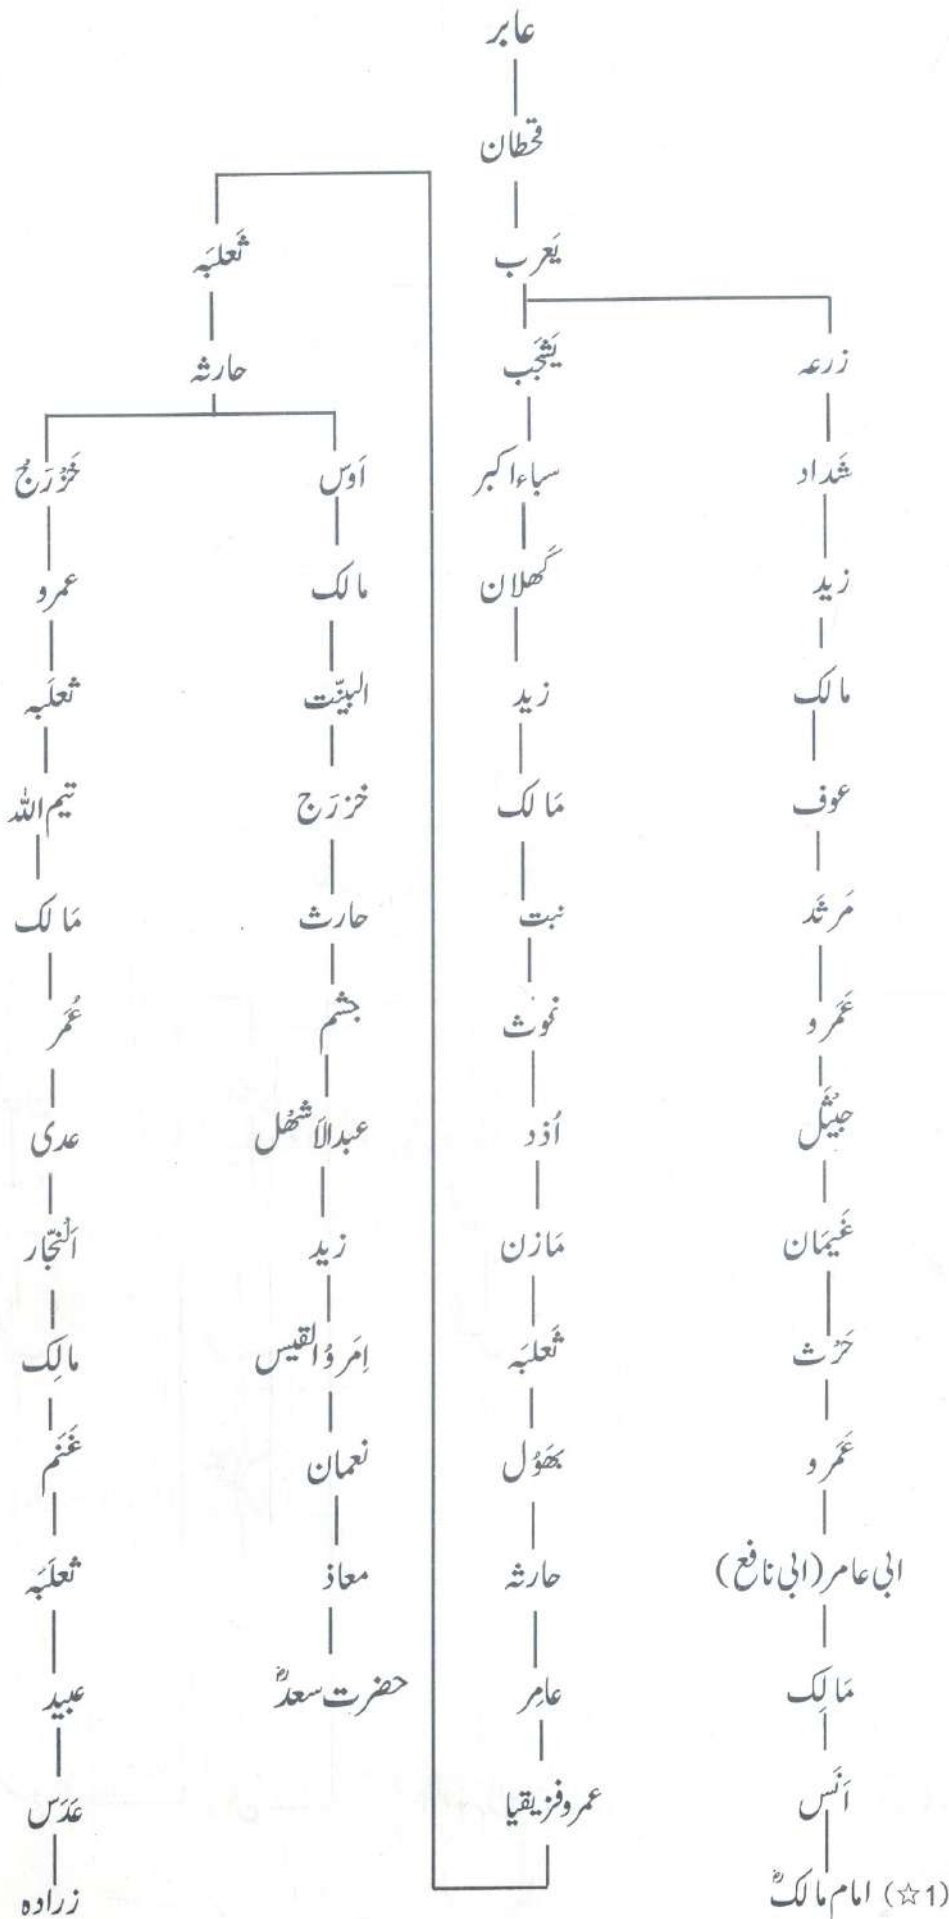 عابر
قحطان
یَعرب
زرعہ
شَداد
زید
مالک
عوف
مَرثَد
عَمرو
جثَیل
غَیمَان
حَرْث
عَمرو
ابی عامر (ابی نافع)
مَالِک
اَنَس
(☆1) امام مالکؒ
یَشجَب
سباء اکبر
کَھلان
زید
مَالک
نبت
غوث
اُذد
مَازن
ثَعلبَہ
بھَوُل
حارثہ
عامِر
عمرو فزیقیا
ثَعلبَہ
حارثہ
اَوس
مالک
البیّنت
خزرَج
حارث
جشم
عبدالاَشھُل
زید
اِمَروُالقیس
نعمان
معاذ
حضرت سعدؓ
خَزُرَج
عمرو
ثعلَبہ
تیم اللہ
مَالک
عُمَر
عدی
اَلنجّار
مالِک
غَنَم
ثعلَبَہ
عبید
عَدَس
زرادہ